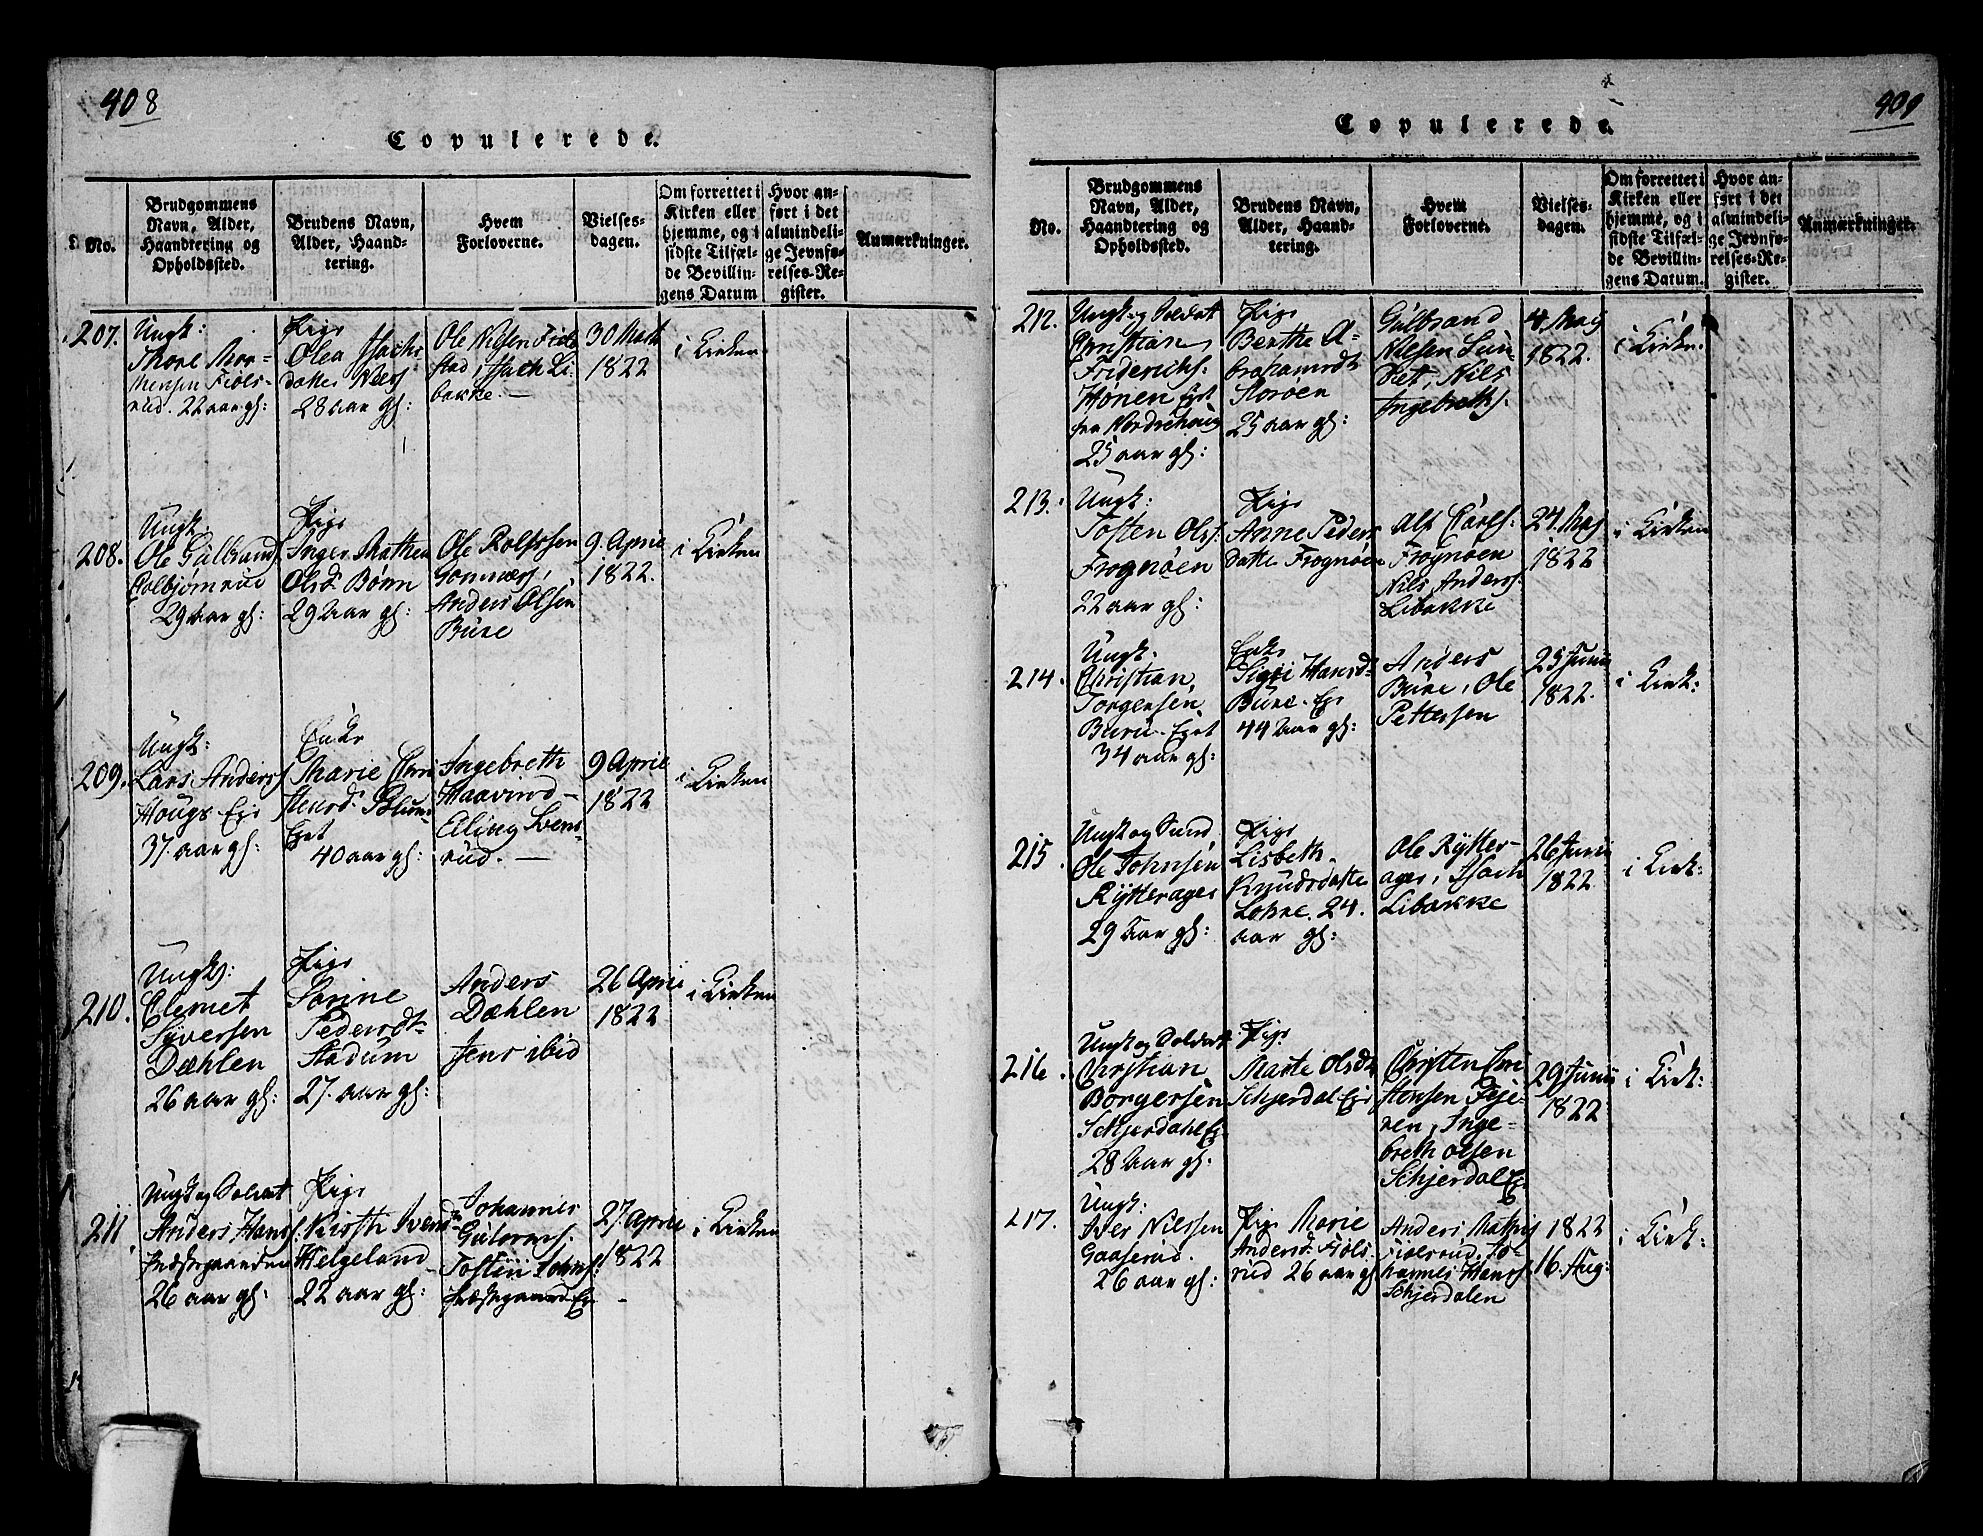 408
Copulerede.
No.
Brudgommens
Navn, Alder,
Haandtering og
Opholdssted.
Brudens Navn,
Alder, Haand-
tering.
Hvem
Forloverne.
Vielses-
dagen.
Om forrettet i
Kirken eller
hjemme, og i
sidste Tilfæl-
de Bevillin-
gens Datum
Hvor an-
ført i det
almindeli-
ge Jevnfø-
relses-Re-
gister.
Anmærkninger.
207.
Ungk:
Thore Mor-
tensen Fiøls-
rud. 22 aar gl:
Pige
Olea Isachs
datter Næss
28 aar gl:
Ole Nilsen
stad, Isach Li-
bakke. —
30 Marti
1822
i Kirken
208.
Ungk.
Ole Gulbrands.
Colbjørnrud
29 Aar gl:
Pige
Inger Mathea
Olsd. Børn
29 Aar gl:
Ole Rolfssen
Anders Olsen
Bure
9 Aprie
1822.
i Kirken
209.
Ungk:
Lars Anders.
Hougs Eje
37. aar gl:
Enke
Marie Chri
stensd. Blum
Ejet
40 aar gl:
Ingebreth
Haavind —
Elling Svens-
rud. —
9 Aprie
1822
i Kirken
210.
Ungk:
Clemet
Syversen
Dæhlen
26 aar gl:
Pige
Sorine
Pedersdt
Stadum
27. aar gl:
Anders
Dæhlen
Jens ibid
26 Aprie
1822
i Kirken
211
Ungk og Soldat
Anders Hans.
Præstegaarden
26 aar gl:
Pige
Kirsth. Svensd.
Helgeland
22 aar gl:
Johannes
Gulbrands.
Tosten Johns:
Præstegaard Ej
27 Aprie
1822
i Kirken
409
Copulerede.
No.
Brudgommens
Navn, Alder,
Haandtering og
Opholdssted.
Brudens Navn,
Alder, Haand-
tering.
Hvem
Forloverne.
Vielses-
dagen.
Om forrettet i
Kirken eller
hjemme, og i
sidste Tilfæl-
de Bevillin-
gens Datum.
Hvor an-
ført i det
almindeli-
ge Jevnfø-
relses-Re-
gister.
Anmærkninger.
212.
Ungk og Soldat
Christian
Friderichs.
Hønen Ejet
fra Nordrehoug
25 aar gl:
Pige
Berthe A-
brahamsdt
Storøen
25 aar gl:
Gulbrand
Nilsen Sun-
det, Nils
Ingebreths.
4. Maj
1822.
i Kirke.
213.
Ungk:
Tosten Ols.
Frognøen
22 aar gl:
Pige
Anne Peders
datte Frognøen
Alf Carls:
Frognøen
Nils Anders.
Libakke
24. Maj
1822
i Kirken
214.
Ungk.
Christian
Torgersen
Buru-Ejet
34 aar gl:
Enke
Sigri Hansd-
Bure-Eje
44 Aar gl:
Anders
Bure, Ole
Pettersen
25 Junii
1822.
i Kirk:
215.
Ungk og Sund.
Ole Johnsen
Rytterager
29 Aar gl:
Pige
Lisbeth
Knudsdatte
Lohne. 24.
aar gl:
Ole Rytter-
ager, Isach
Libakke
26 Junii
1822
i Kirk:
216.
Ungk og Soldat
Christian
Borgersen
Schjerdahl Ej.
28 Aar gl.
Pige
Marte Olsd.
Schjerdal Eje
Christen Chri
stensen Feje-
ren, Inge-
breth olsen
Schjerdal Ej
29 Junii
1822
i Kirk:
217.
Ungk:
Iver Nilssen
Gaaserud.
26 aar gl:
Pige Marie
Andersd. Fiøls-
rud 26 aar gl
Anders Mathis
Fiølsrud. Jo-
hannes Hans.
Schjerdalen
1822
16. Aug:
i Kirk: